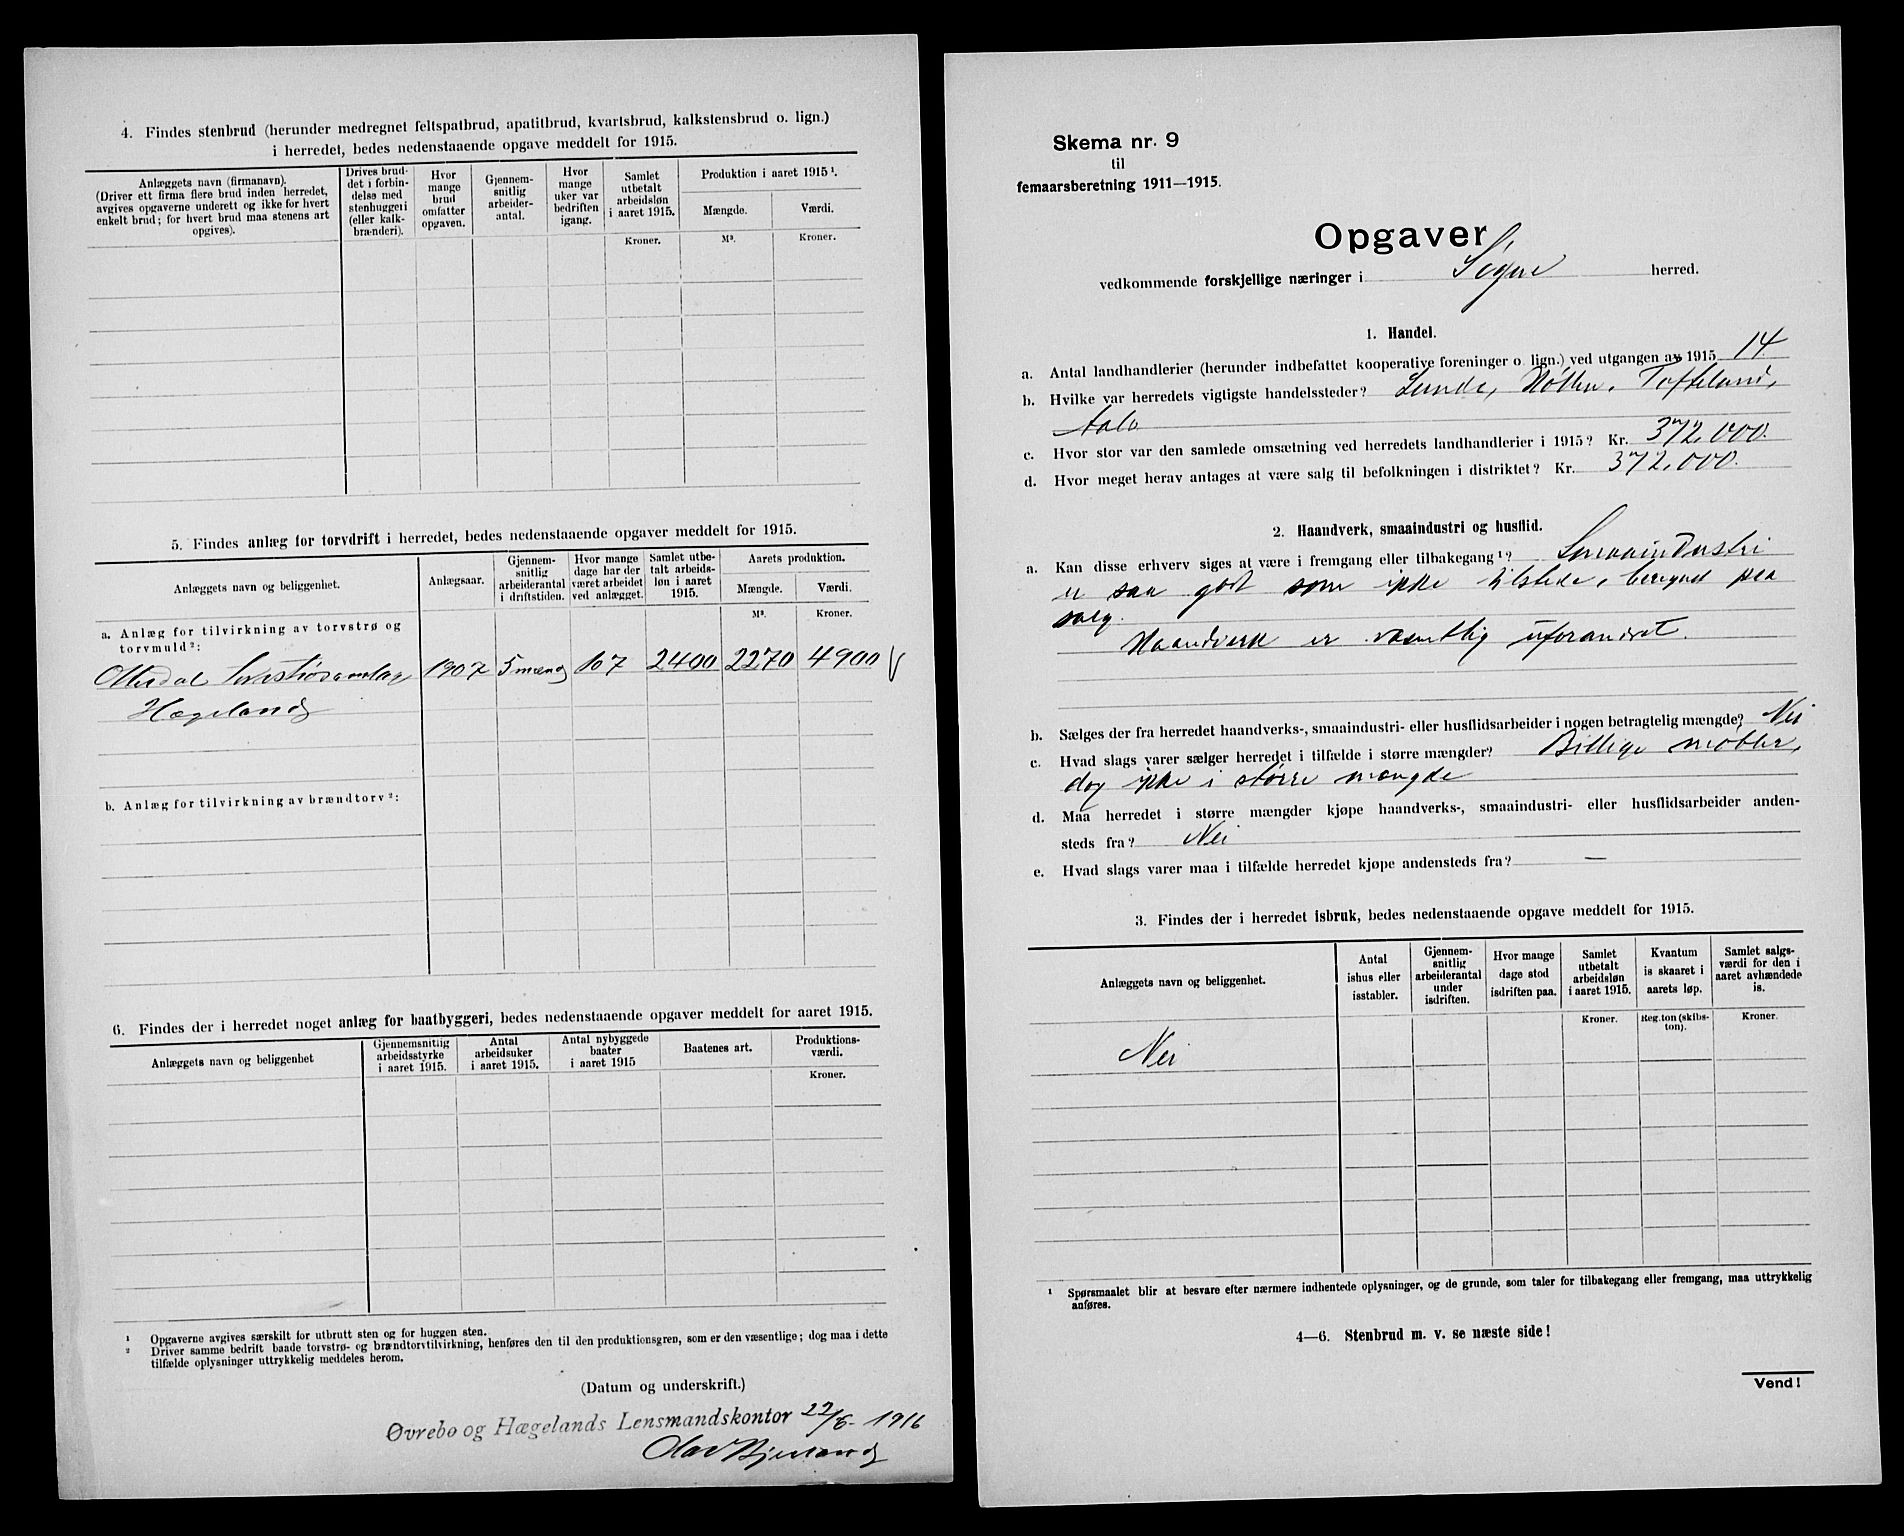 4. Findes stenbrud (herunder medregnet feltspatbrud, apatitbrud, kvartsbrud, kalkstensbrud o. lign.)
i herredet, bedes nedenstaaende opgave meddelt for 1915.
Anlæggets navn (firmanavn).
(Driver ett firma flere brud inden herredet,
avgives opgaverne underett og ikke for hvert
enkelt brud; for hvert brud maa stenens art
opgives).
Drives brud-
det i forbin-
delse med
stenhuggeri
(eller kalk-
brænderi).
Hvor
mange
brud
omfatter
opgaven.
Gjennem-
snitlig
arbeider-
antal.
Hvor
mange
uker var
bedriften
igang.
Samlet
utbetalt
arbeidsløn
i aaret 1915.
Produktion i aaret 1915¹.
Mængde.
Værdi.
Kroner.
M³.
Kroner.
5. Findes anlæg for torvdrift i herredet, bedes nedenstaaende opgaver meddelt for 1915.
Anlæggets navn og beliggenhet.
Anlægsaar.
Gjennem-
snitlig
arbeiderantal
i driftstiden.
Hvor mange
dage har der
været arbeidet
ved anlægget.
Samlet utbe-
talt arbeids-
løn i aaret
1915.
Aarets produktion.
Mængde.
Værdi.
M³.
Kroner.
a. Anlæg for tilvirkning av torvstrø og
torvmuld²:
1907 5 mænd 107 2400 2270 4900
Hægeland
b. Anlæg for tilvirkning av brændtorv²:
6. Findes der i herredet noget anlæg for baatbyggeri, bedes nedenstaaende opgaver meddelt for aaret 1915.
Anlæggets navn og beliggenhet
Gjennemsnitlig
arbeidsstyrke
i aaret 1915.
Antal
arbeidsuker
i aaret 1915.
Antal nybyggede
baater
i aaret 1915
Baatenes art.
Produktions-
værdi.
Kroner.
¹ Opgaverne avgives særskilt for utbrutt sten og for huggen sten.
² Driver samme bedrift baade torvstrø- og brændtorvtilvirkning, henføres den til den produktionsgren, som er den væsentlige; dog maa i dette
tilfælde oplysninger uttrykkelig meddeles herom.
(Datum og underskrift.)
Øvrebo og Hægelands Lensmandskontor 22/6-1916
Skema nr. 9
til
femaarsberetning 1911—1915.
Opgaver
vedkommende forskjellige næringer i Søgne herred.
1. Handel.
a. Antal landhandlerier (herunder indbefattet kooperative foreninger o. lign.) ved utgangen av 1915 14
b. Hvilke var herredets vigtigste handelssteder? Lunde, Høllen, Tofteland,
Aalo
c. Hvor stor var den samlede omsætning ved herredets landhandlerier i 1915? Kr. 372.000.
d. Hvor meget herav antages at være salg til befolkningen i distriktet? Kr. 372.000.
2. Haandverk, smaaindustri og husflid.
a. Kan disse erhverv siges at være i fremgang eller tilbakegang¹? Smaaindustri
er saa godt som ikke tilstede, beregnet paa
salg.
Haandverk er væsentlig uforandret.
b. Sælges der fra herredet haandverks-, smaaindustri- eller husflidsarbeider i nogen betragtelig mængde? Nei
c. Hvad slags varer sælger herredet i tilfælde i større mængder? Billige møbler,
dog ikke i større mængde
d. Maa herredet i større mængder kjøpe haandverks-, smaaindustri- eller husflidsarbeider anden-
steds fra? Nei
e. Hvad slags varer maa i tilfælde herredet kjøpe andensteds fra? —
3. Findes der i herredet isbruk, bedes nedenstaaende opgave meddelt for 1915.
Anlæggets navn og beliggenhet.
Antal
ishus eller
isstabler.
Gjennem-
snitlig
arbeiderantal
under
isdriften.
Hvor mange
dage stod
isdriften paa.
Samlet
utbetalt
arbeidsløn
i aaret 1915.
Kvantum
is skaaret i
aarets løp.
Samlet salgs-
værdi for den i
aaret avhændede
is.
Kroner.
Reg.ton (skibs-
ton).
Kroner.
Nei
¹ Spørsmaalet blir at besvare efter nærmere indhentede oplysninger, og de grunde, som taler for tilbakegang eller fremgang, maa uttrykkelig
anføres.
4—6. Stenbrud m. v. se næste side!
Vend!